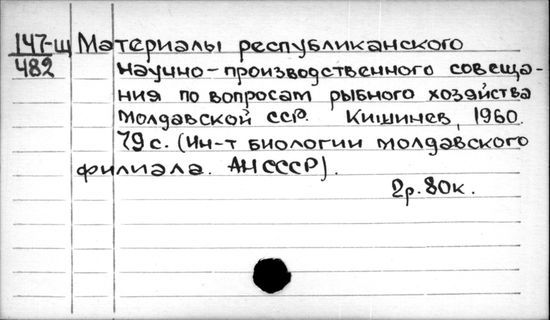 147-щ Материалы республиканского
482 научно-производственного совеща-
ния по вопросам рыбного хозяйства
Молдавской ССР. Кишинев, 1960.
79 с. (Ин-т биологии молдавского
филиала. АН СССР).
2р. 80к.